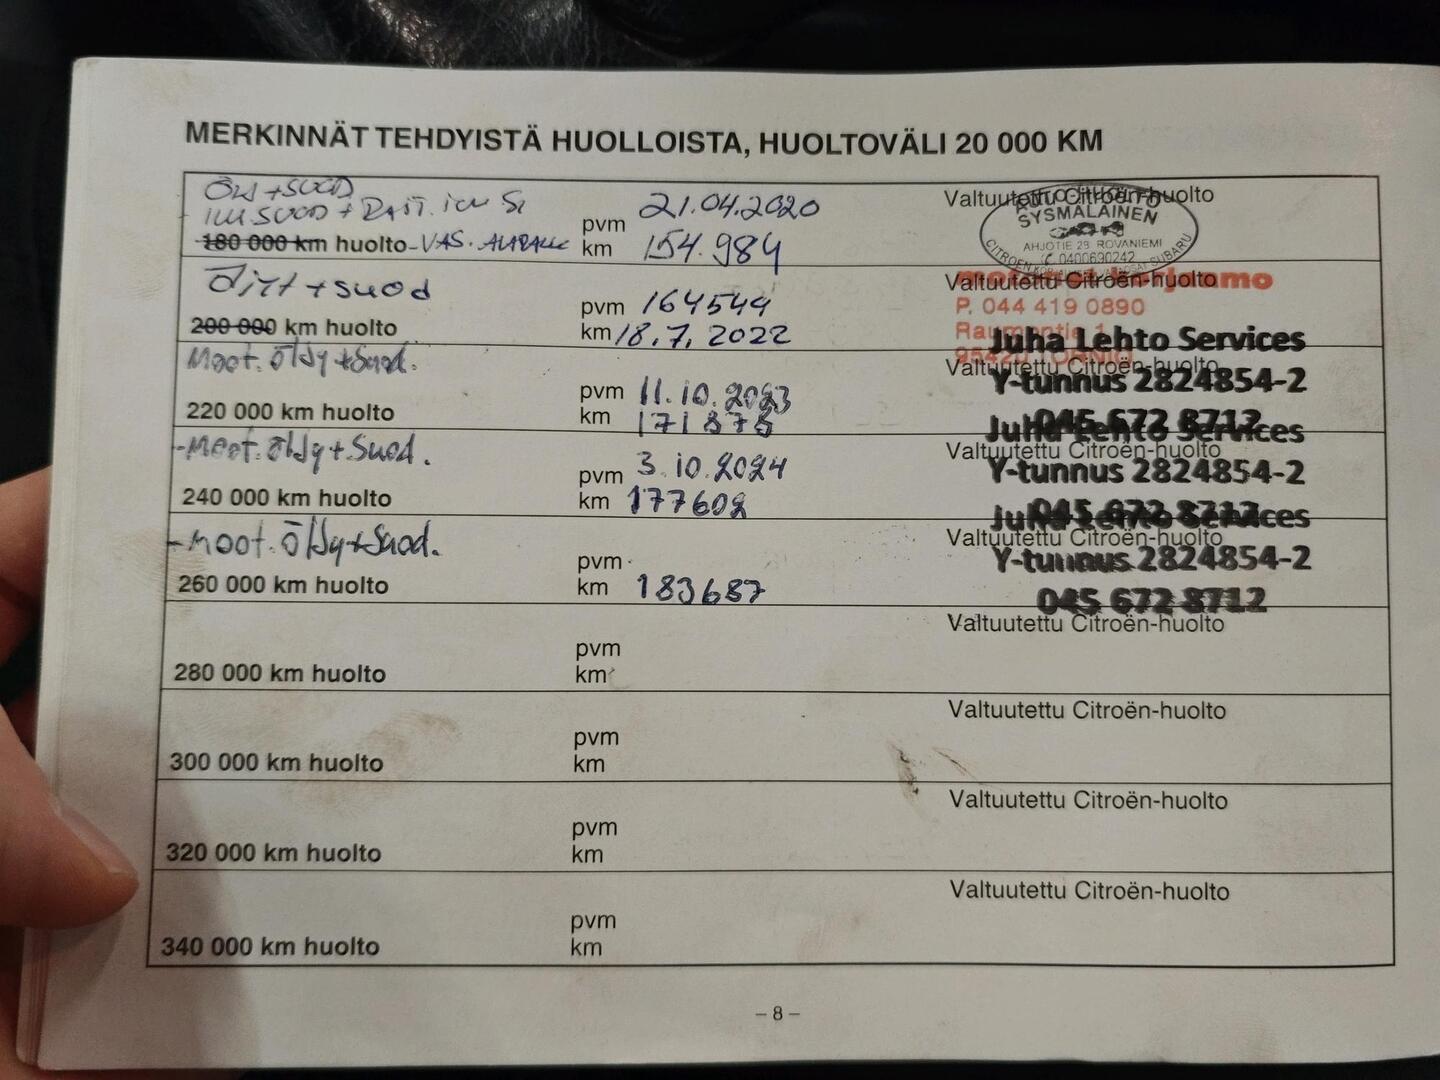 MERKINNÄT TEHDYISTÄ HUOLLOISTA, HUOLTOVÄLI 20 000 KM
ÖLJ + SUOD
ILM SUOD + RAIT. ILM S
180 000 km huolto
VAS. ALAPALLO
pvm 21.04.2020
km 154.984
Valtuutettu Citroën-huolto
SYSMÄLÄINEN
AHJOTIE 23 ROVANIEMI
0400690242
+ suod
200 000 km huolto
pvm 164544
km 18.7.2022
Valtuutettu Citroën-huolto
P. 044 419 0890
Raumontie 1
Moot. Öljy + Suod.
220 000 km huolto
pvm 11.10.2023
km 171875
Valtuutettu Citroën-huolto
Juha Lehto Services
Y-tunnus 2824854-2
045 672 8712
- Moot. Öljy + Suod.
240 000 km huolto
pvm 3.10.2024
km 177602
Valtuutettu Citroën-huolto
Juha Lehto Services
Y-tunnus 2824854-2
045 672 8712
- Moot. Öljy + Suod.
260 000 km huolto
pvm
km 183687
Valtuutettu Citroën-huolto
Juha Lehto Services
Y-tunnus 2824854-2
045 672 8712
280 000 km huolto
pvm
km
Valtuutettu Citroën-huolto
300 000 km huolto
pvm
km
Valtuutettu Citroën-huolto
320 000 km huolto
pvm
km
Valtuutettu Citroën-huolto
340 000 km huolto
pvm
km
Valtuutettu Citroën-huolto
– 8 –